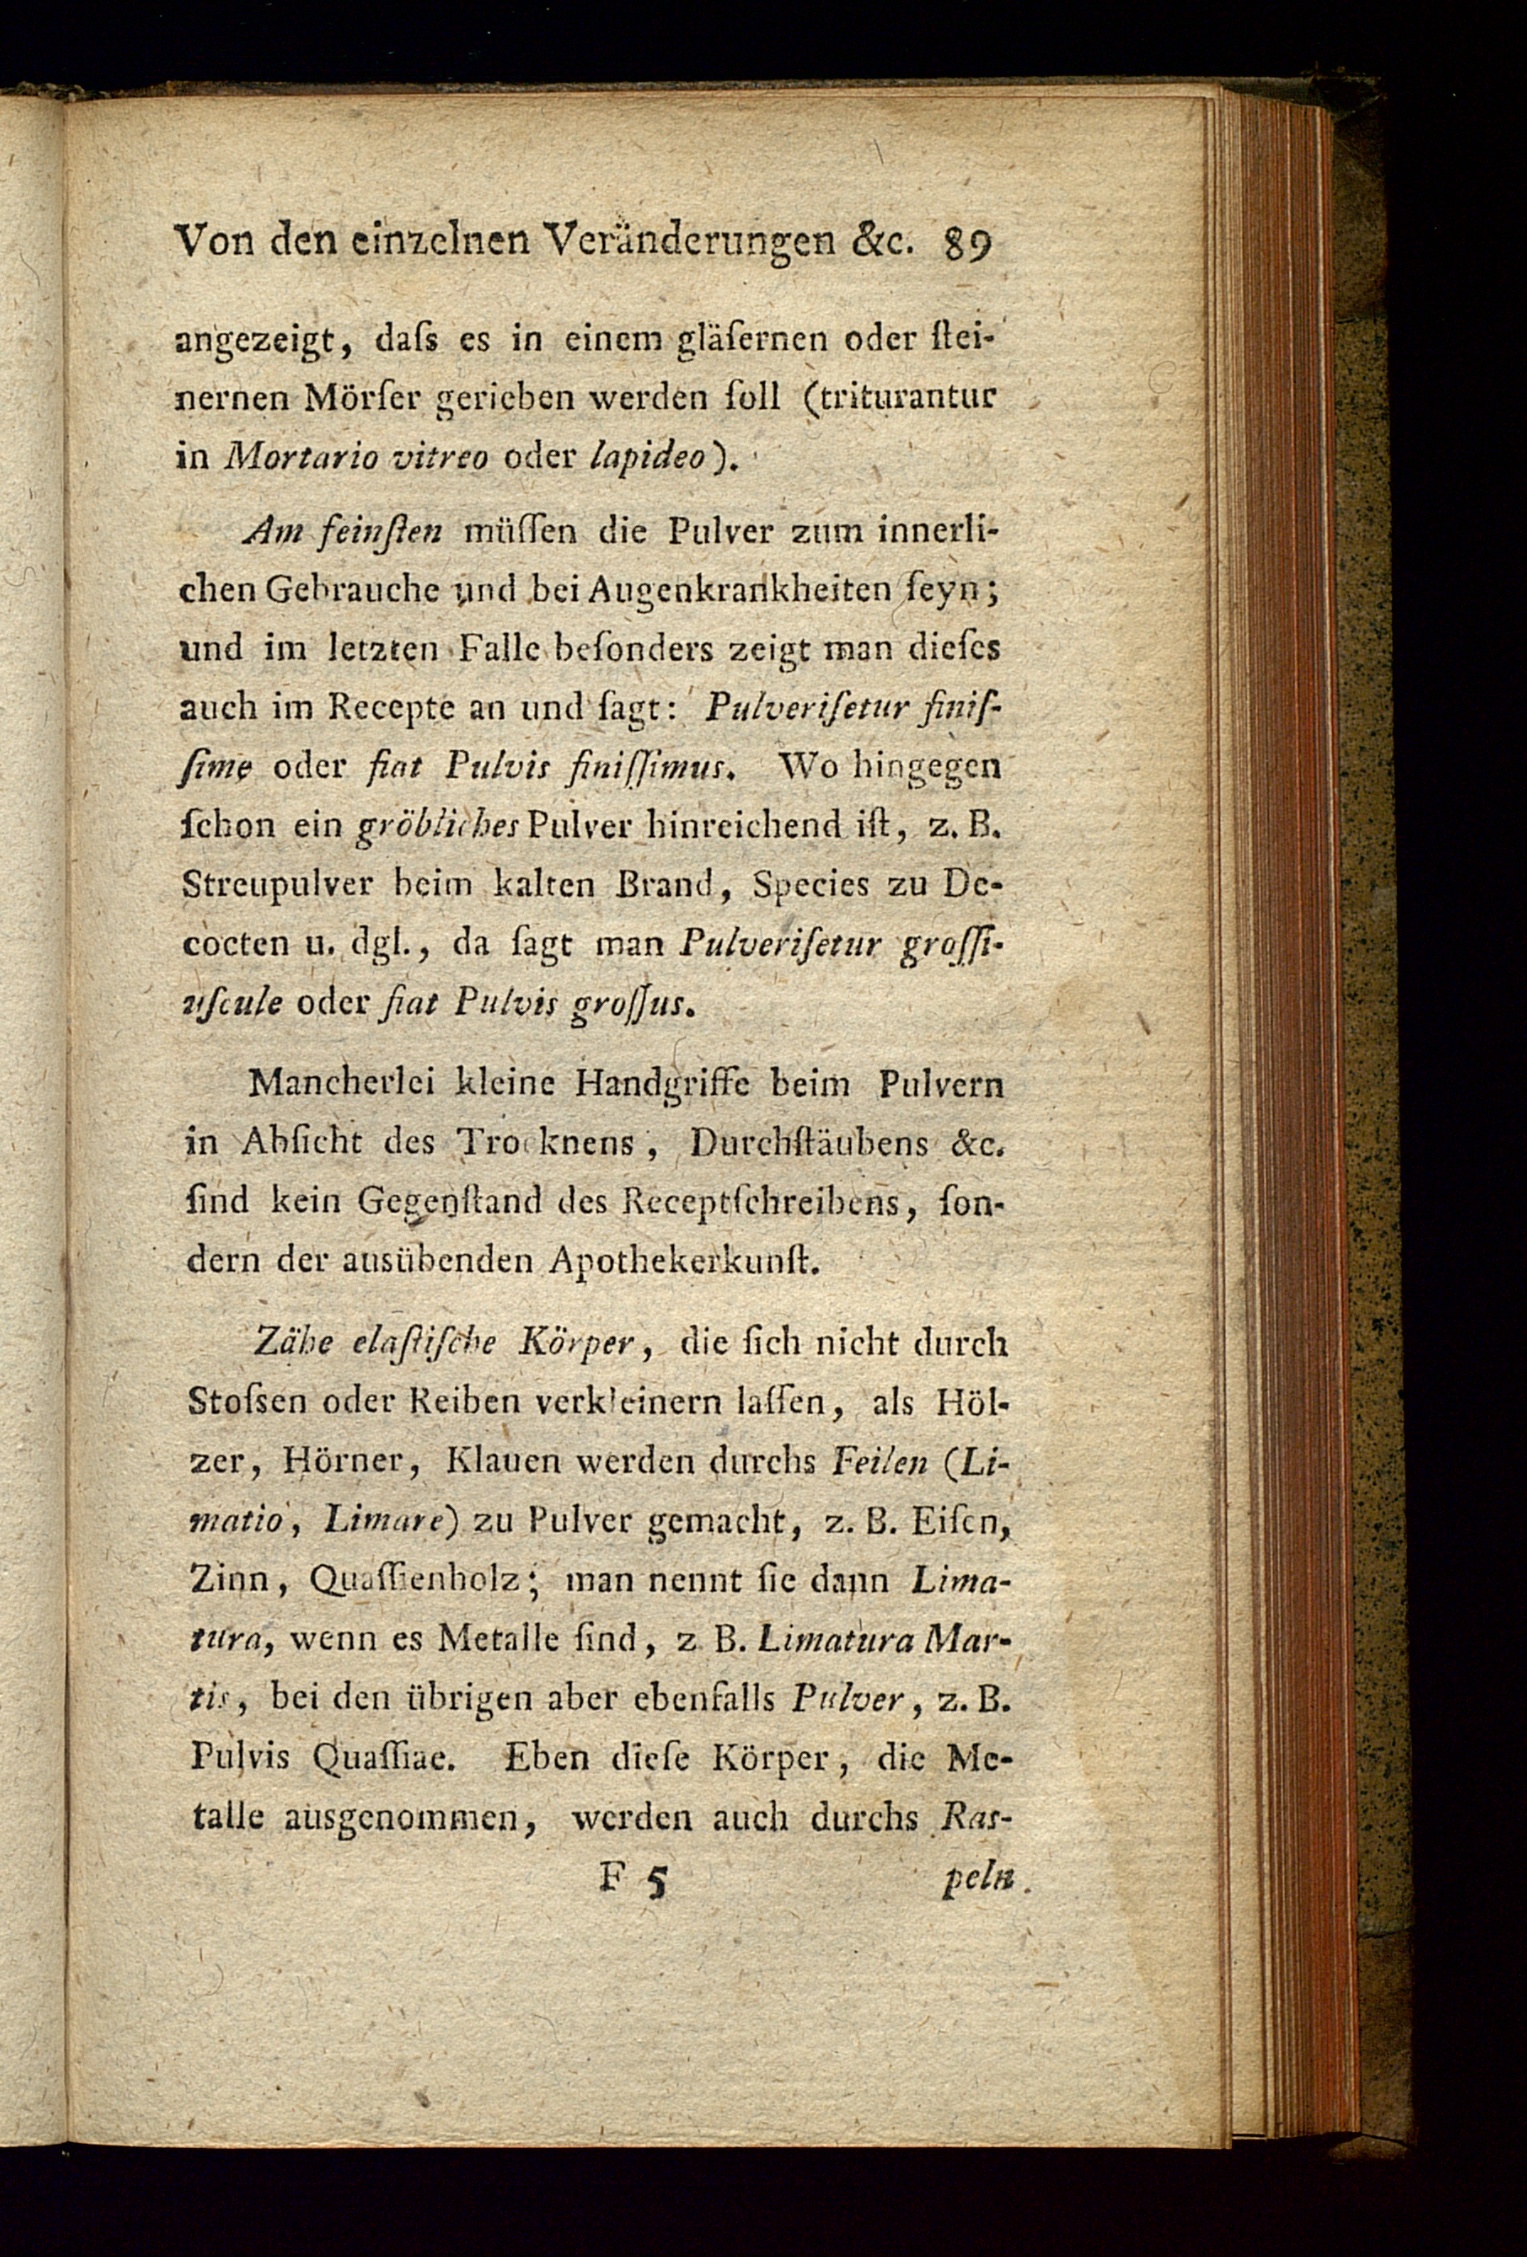 Von den einzelnen Veränderungen &c. 89
angezeigt, daſs es in einem gläſernen oder ſtei-
nernen Mörſer gerieben werden ſoll (triturantur
in Mortario vitreo oder lapideo).
Am feinſten müſſen die Pulver zum innerli-
chen Gebrauche und bei Augenkrankheiten ſeyn;
und im letzten Falle beſonders zeigt man dieſes
auch im Recepte an und ſagt: Pulveriſetur finiſ-
ſime oder fiat Pulvis finiſſimus. Wo hingegen
ſchon ein gröbliches Pulver hinreichend iſt, z. B.
Streupulver beim kalten Brand, Species zu De-
cocten u. dgl., da ſagt man Pulveriſetur groſſi-
uſcule oder fiat Pulvis groſſus.
Mancherlei kleine Handgriffe beim Pulvern
in Abſicht des Trocknens, Durchſtäubens &c.
ſind kein Gegenſtand des Receptſchreibens, ſon-
dern der ausübenden Apothekerkunſt.
Zähe elaſtiſche Körper, die ſich nicht durch
Stoſsen oder Reiben verkleinern laſſen, als Höl-
zer, Hörner, Klauen werden durchs Feilen (Li-
matio, Limare) zu Pulver gemacht, z. B. Eiſen,
Zinn, Quaſſienholz; man nennt ſie dann Lima-
tura, wenn es Metalle ſind, z B. Limatura Mar-
tis, bei den übrigen aber ebenfalls Pulver, z. B.
Pulvis Quaſſiae. Eben dieſe Körper, die Me-
talle ausgenommen, werden auch durchs Ras-
F 5 peln